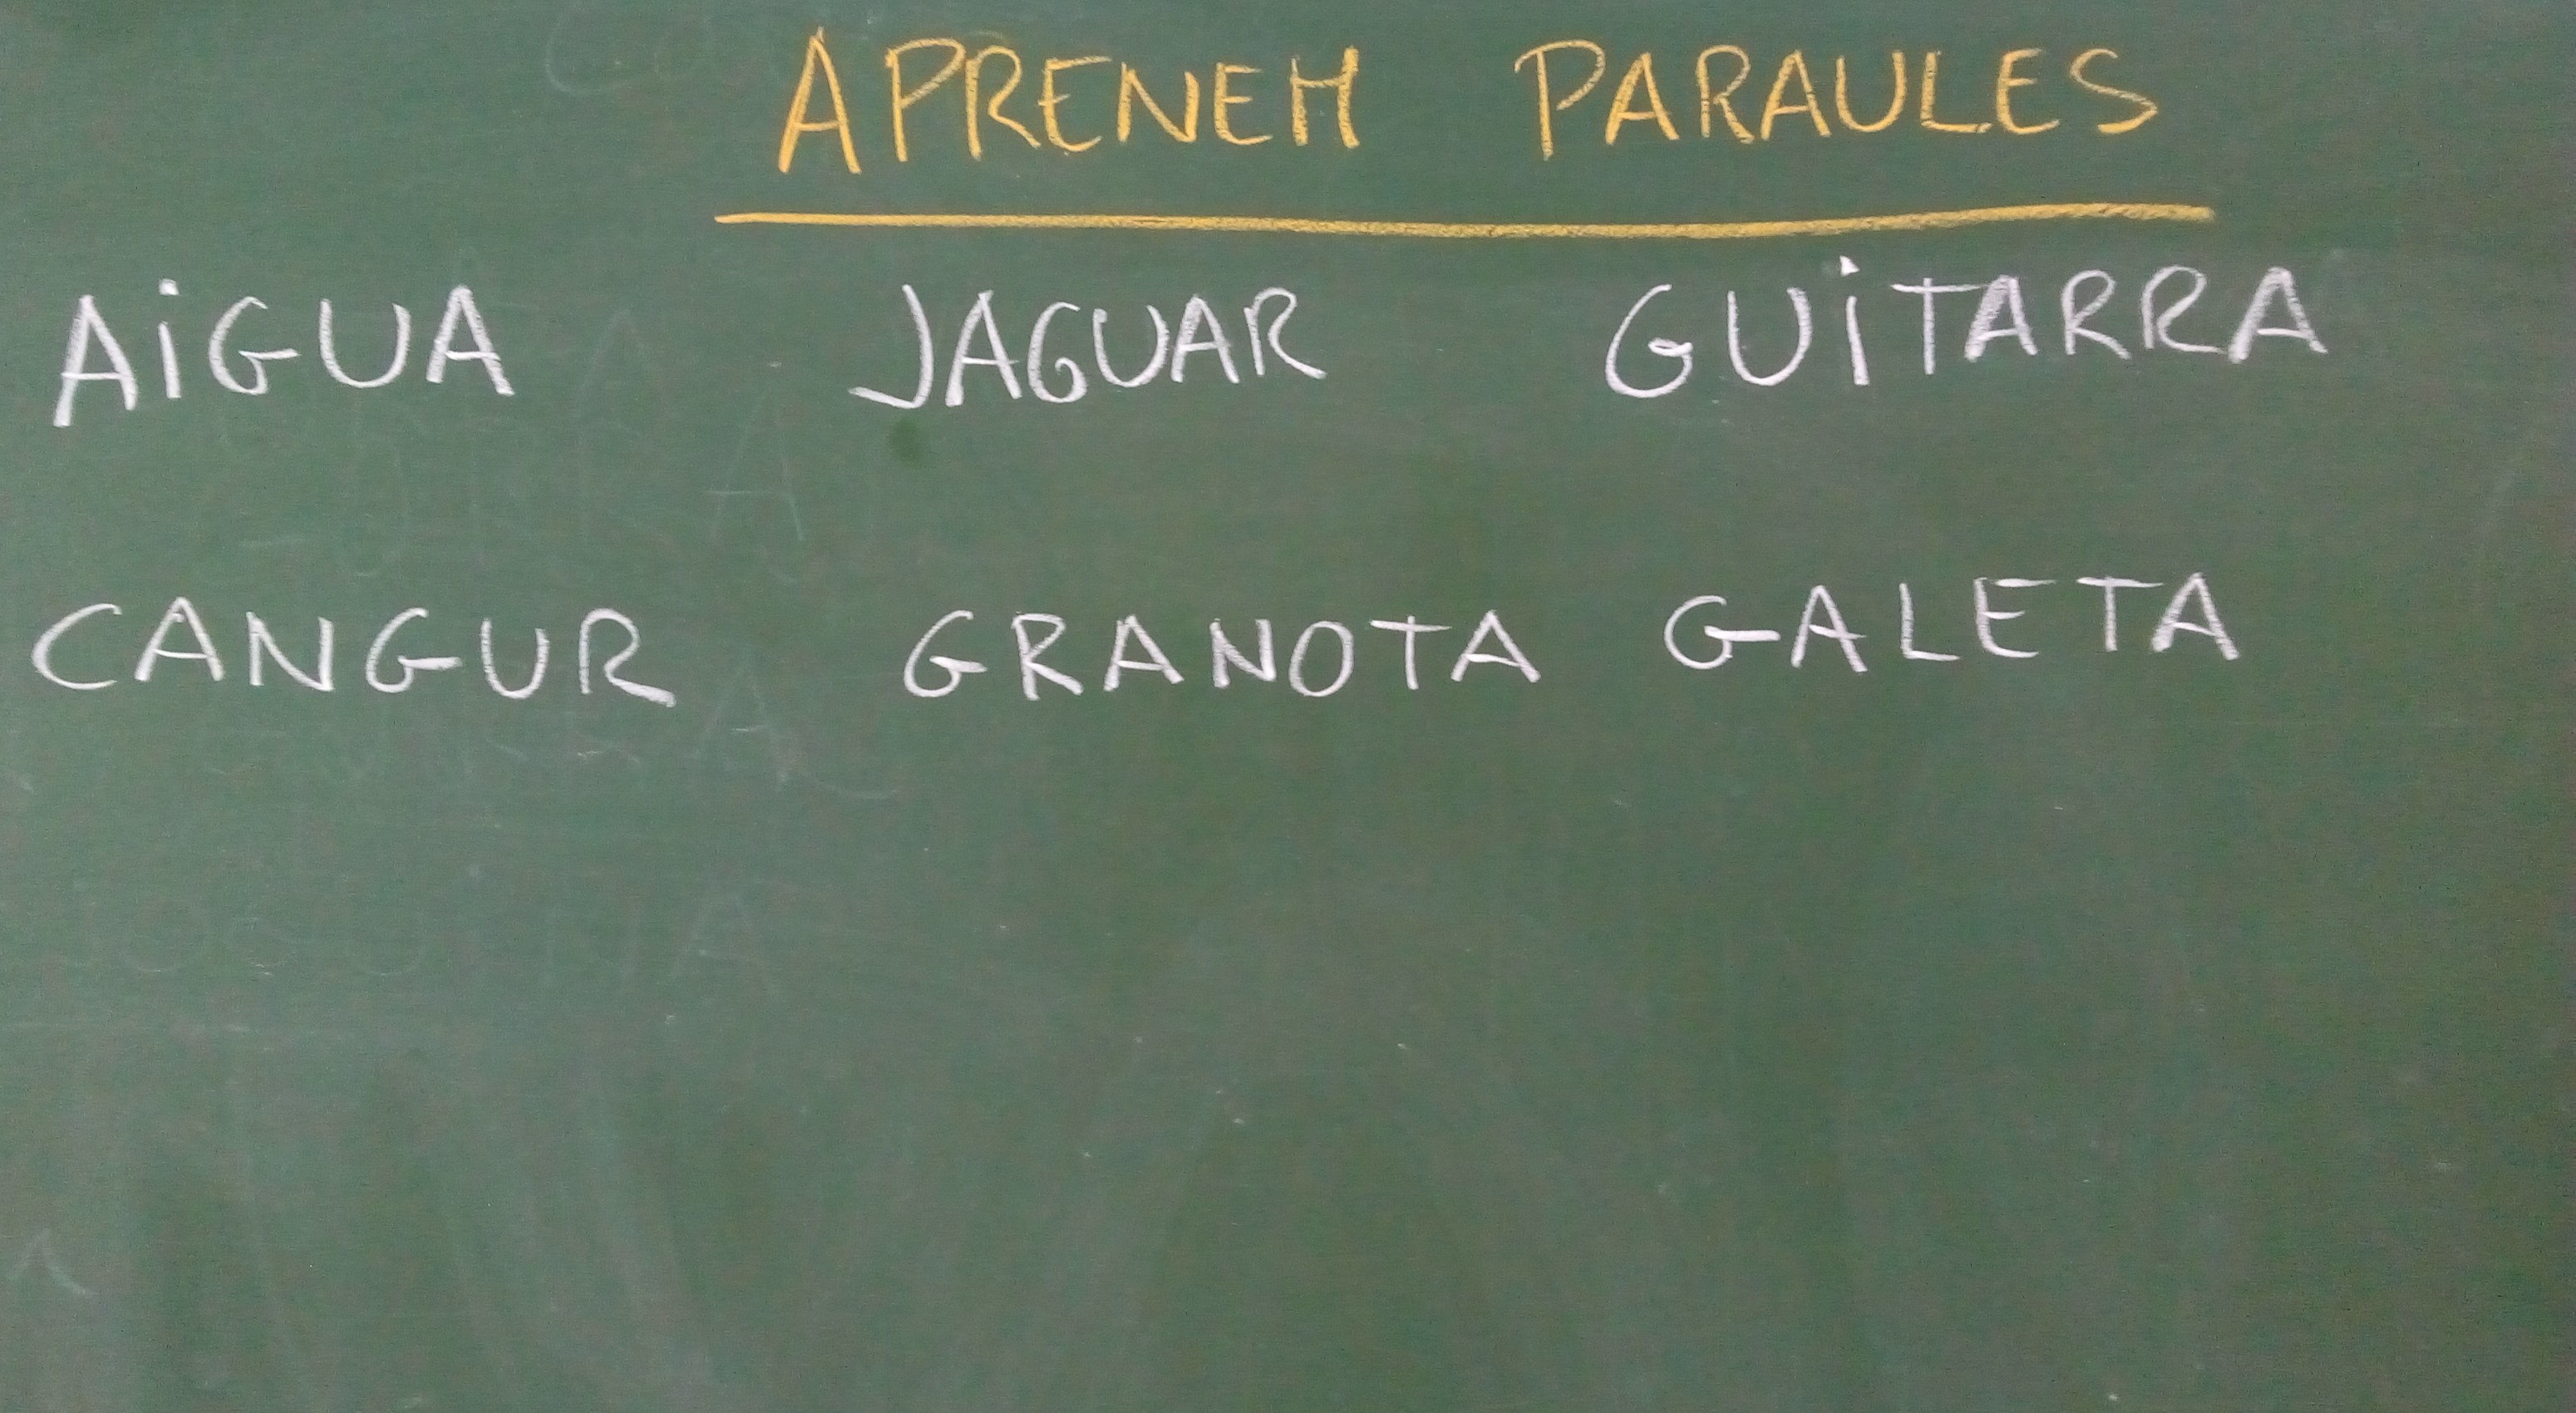 APRENEM PARAULES
AiGUA JAGUAR GUiTARRA
CANGUR GRANOTA GALETA